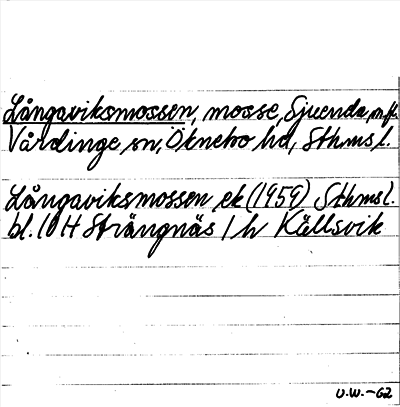 Långaviksmossen, mosse, Sjuenda, m.fl.
Vårdinge sn, Öknebo hd, Sthms l.
Långaviksmossen ek (1959) Sthms l.
bl. 10 H Strängnäs / h Källsvik
U.W.-62